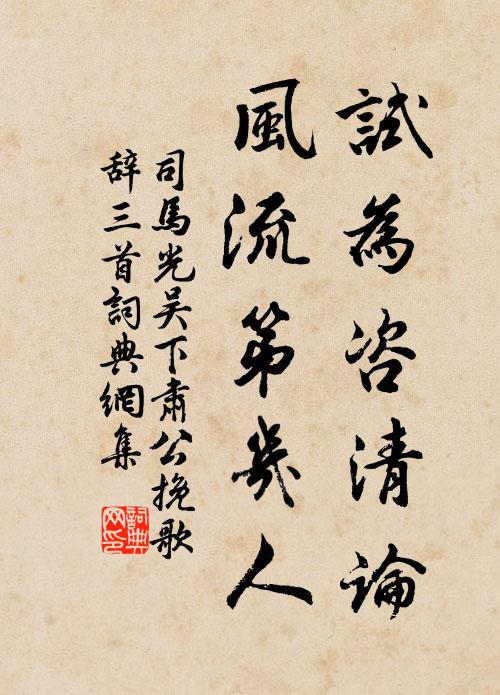 試為咨清論
風流第幾人
司馬光吴下肅公挽歌
辞三首詞典網集
詞典
网印